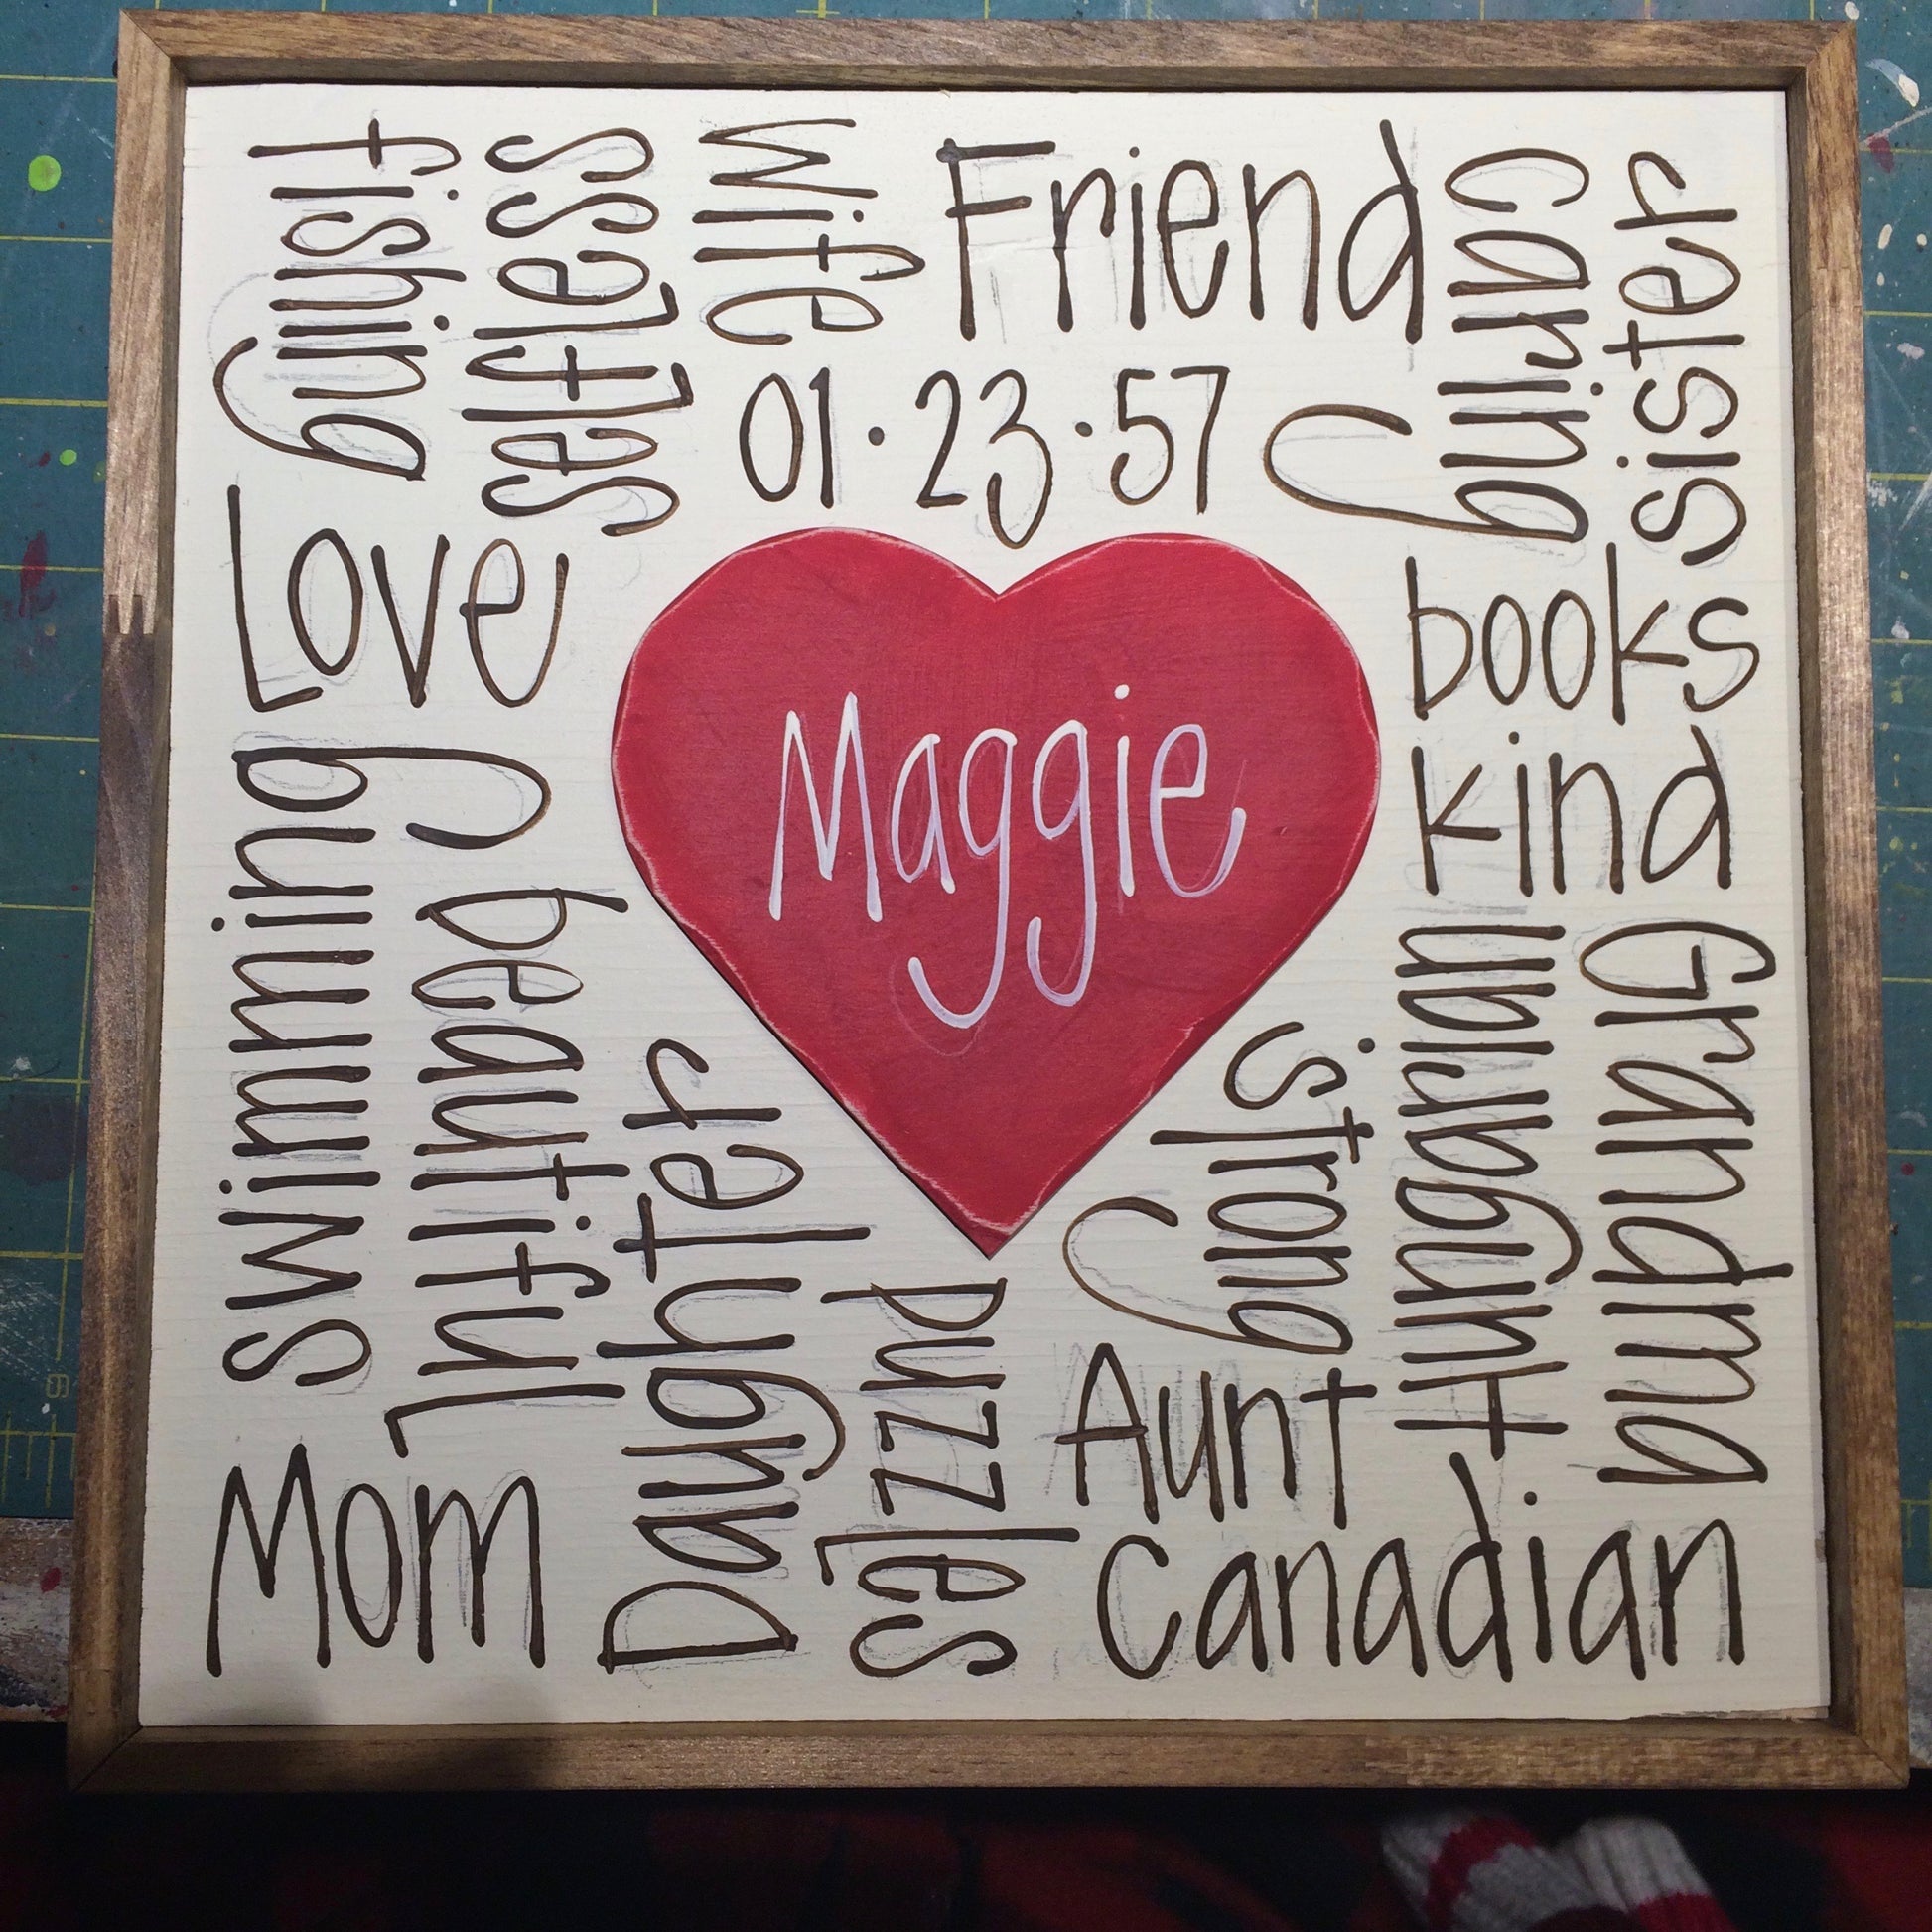 fishing
selfless
wife
Friend
caring
sister
01·23·57
Love
books
Maggie
kind
swimming
beautiful
Daughter
strong
Hungarian
Grandma
puzzles
Aunt
Mom
Canadian